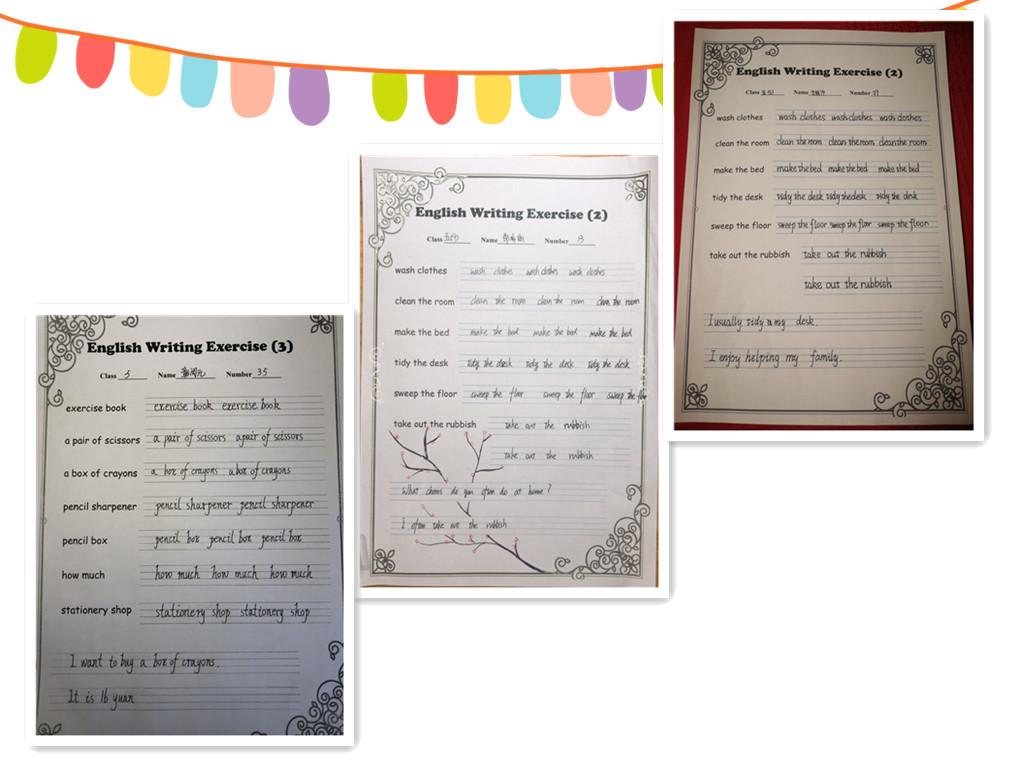 English Writing Exercise (3)
Class 5 Name Number 35
exercise book exercise book exercise book
a pair of scissors a pair of scissors a pair of scissors
a box of crayons a box of crayons a box of crayons
pencil sharpener pencil sharpener pencil sharpener
pencil box pencil box pencil box pencil box
how much how much how much how much
stationery shop stationery shop stationery shop
I want to buy a box of crayons.
It is 16 yuan
English Writing Exercise (2)
Class Name Number 13
wash clothes wash clothes wash clothes wash clothes
clean the room clean the room clean the room clean the room
make the bed make the bed make the bed make the bed
tidy the desk tidy the desk tidy the desk tidy the desk
sweep the floor sweep the floor sweep the floor sweep the floor
take out the rubbish take out the rubbish
take out the rubbish
What chores do you often do at home?
I often take out the rubbish
English Writing Exercise (2)
Class Name Number
wash clothes wash clothes wash clothes wash clothes
clean the room clean the room clean the room clean the room
make the bed make the bed make the bed make the bed
tidy the desk tidy the desk tidy the desk tidy the desk
sweep the floor sweep the floor sweep the floor sweep the floor
take out the rubbish take out the rubbish
take out the rubbish
I usually tidy my desk.
I enjoy helping my family.